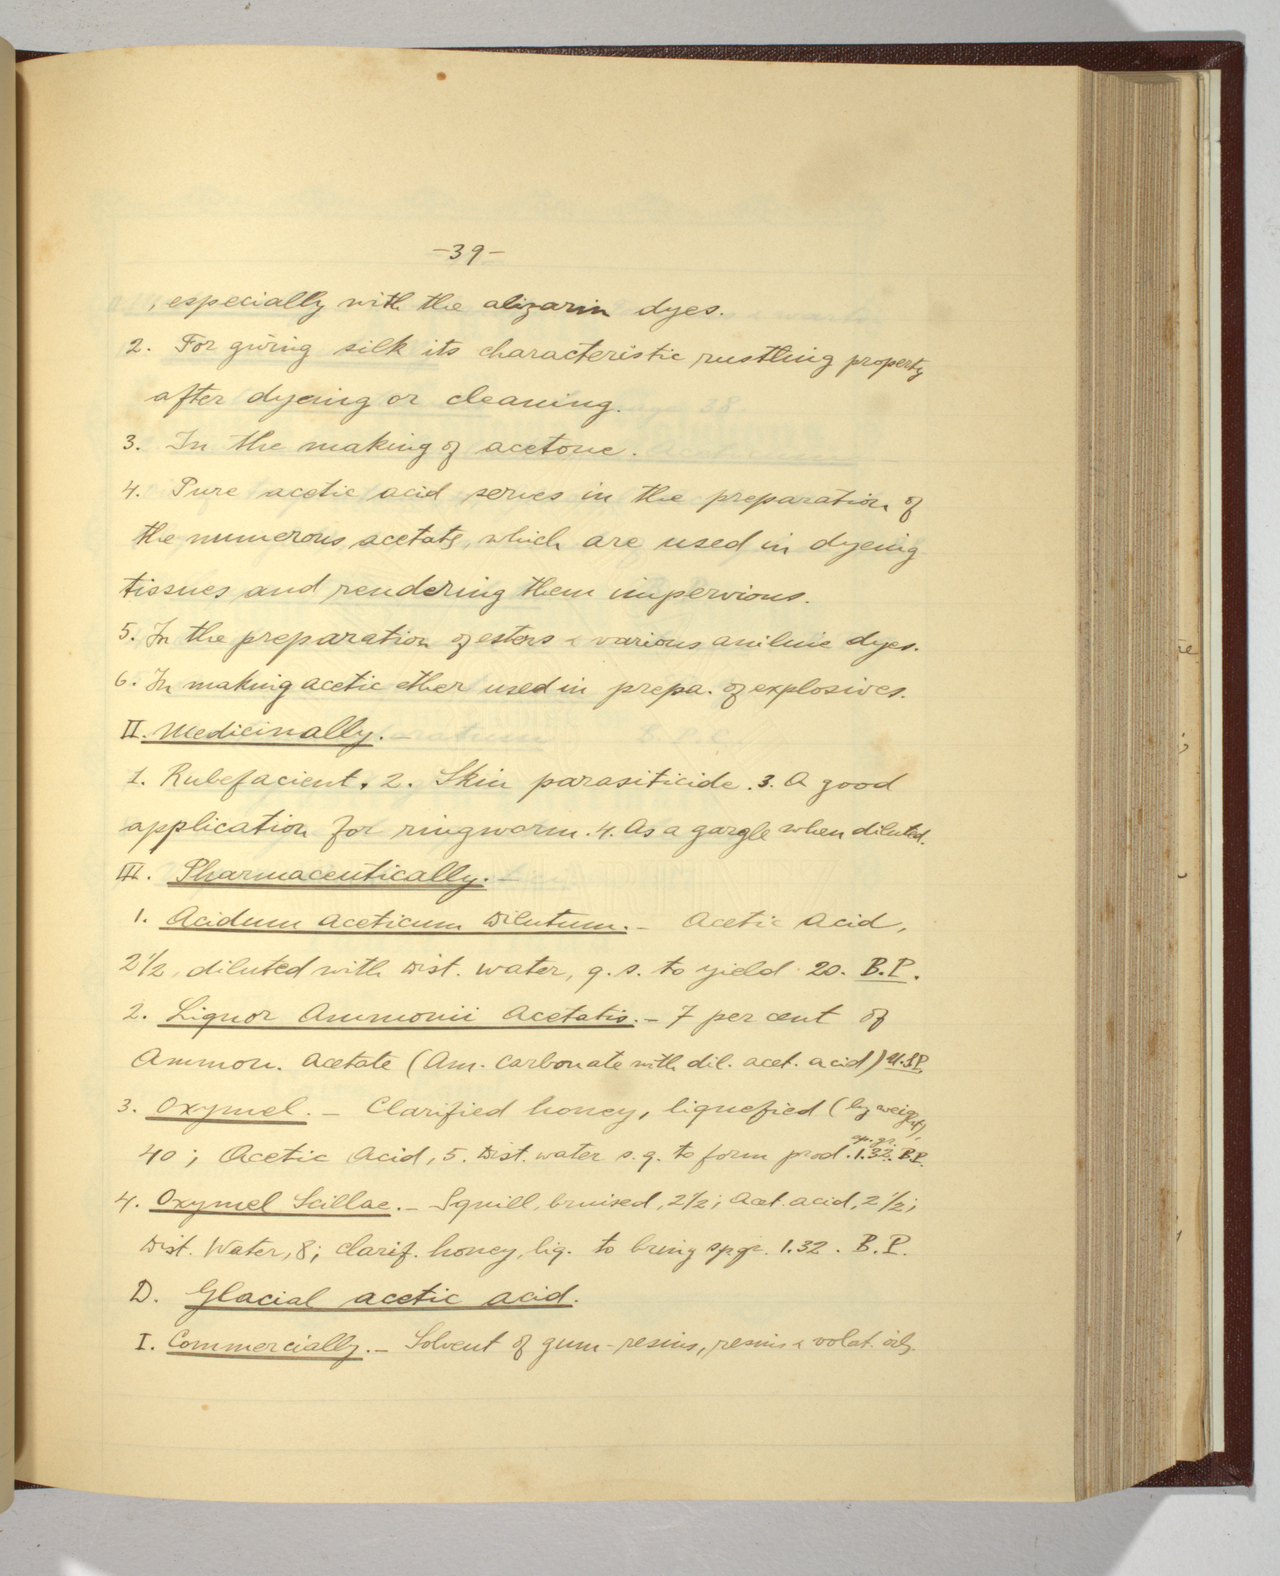 -39-
, especially with the alizarin dyes.
2. For giving silk its characteristic rustling property
after dyeing or cleaning.
3. In the making of acetone.
4. Pure acetic acid serves in the preparation of
the numerous acetats, which are used in dyeing
tissues and rendering them impervious.
5. In the preparation of esters & various anilinic dyes.
6. In making acetic ether used in prepa. of explosives.
II. Medicinally. -
1. Rubefacient. 2. Skin parasiticide. 3. A good
application for ringworm. 4. As a gargle when diluted.
III. Pharmaceutically. -
1. Acidum Aceticum Dilutum. - Acetic Acid,
2½, diluted with Dist. water, q. s. to yield 20. B.P.
2. Liquor Ammonii Acetatis. - 7 per cent of
Ammon. Acetate (Am. Carbonate with dil. acet. acid) U.S.P.
3. Oxymel. - Clarified honey, liquefied (by weight),
40; Acetic Acid, 5. Dist. water s. q. to form prod. sp. gr. 1.32. B.P.
4. Oxymel Scillae. - Squill, bruised, 2½; Acet. acid, 2½;
Dist. Water, 8; clarif. honey, liq. to bring sp gr. 1.32. B.P.
D. Glacial acetic acid.
I. Commercially. - Solvent of gum-resins, resins & volat. oils.